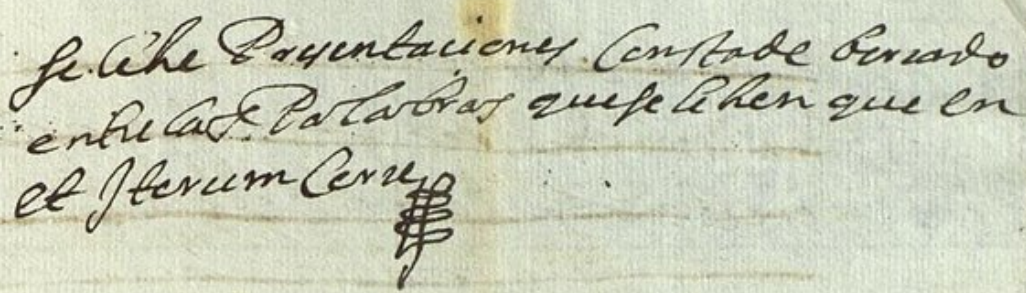 se lehe Presentaciones Consta de borrado
entre las Palabras que se lehen que en
et Iterum Cerre